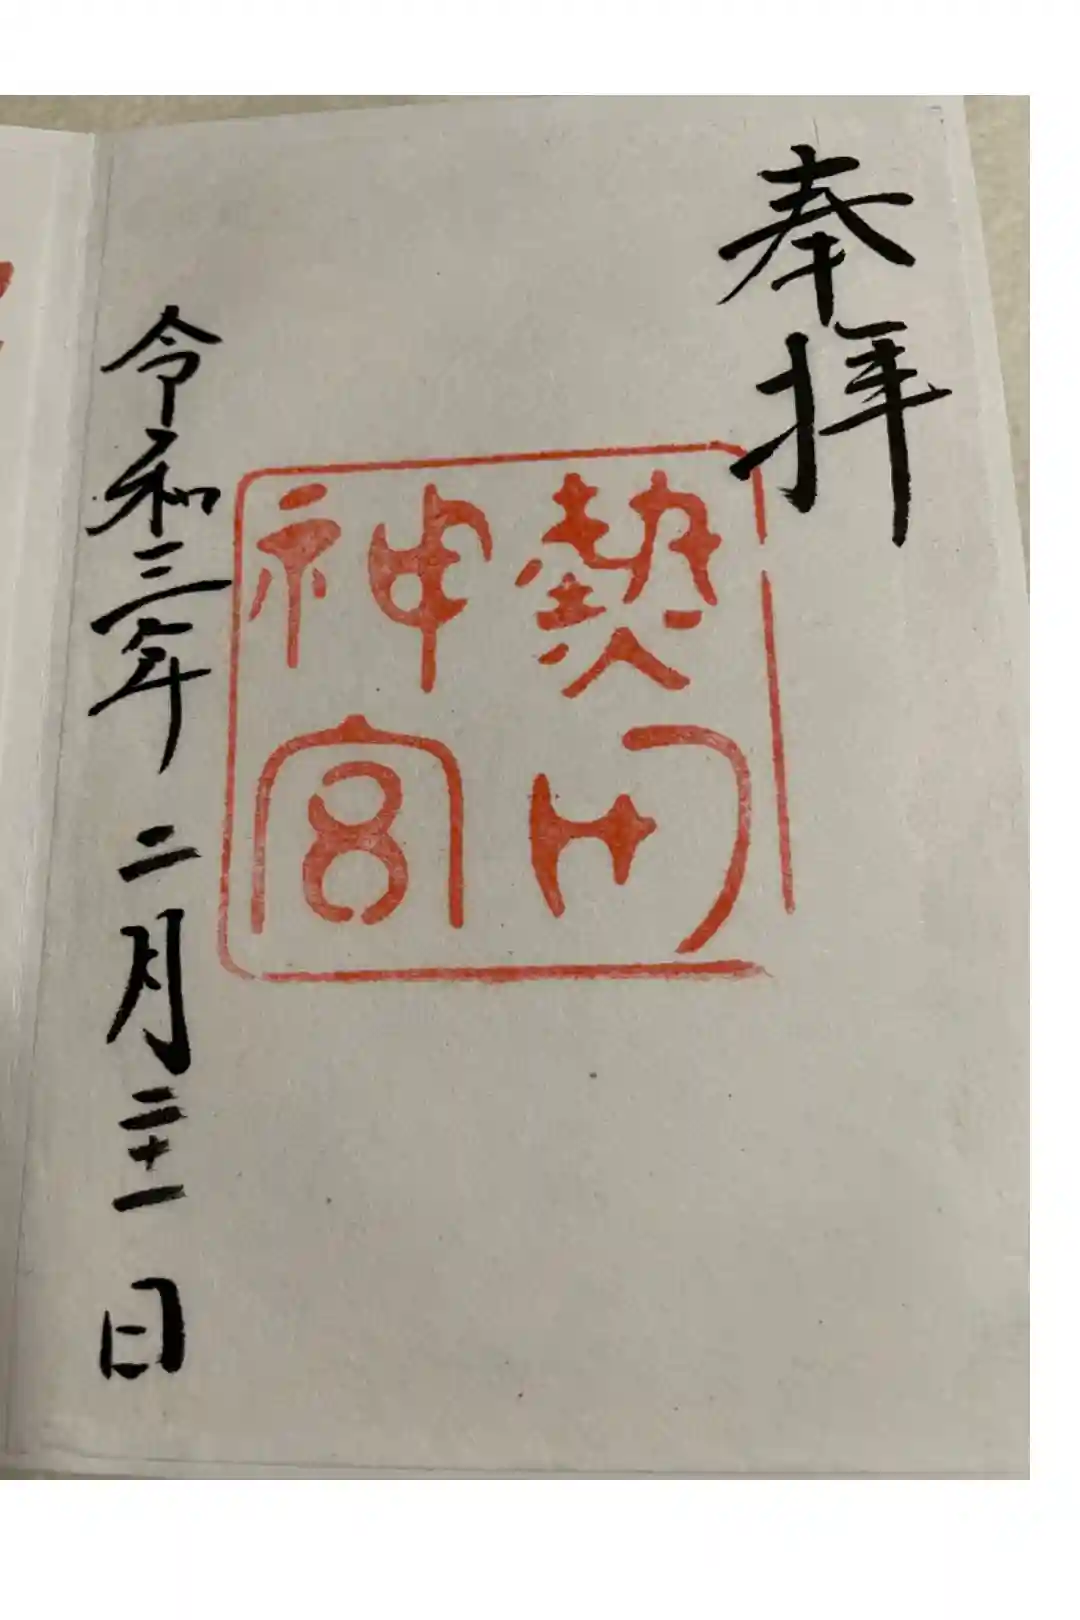 奉拝
熱田
神宮
令和三年二月二十一日